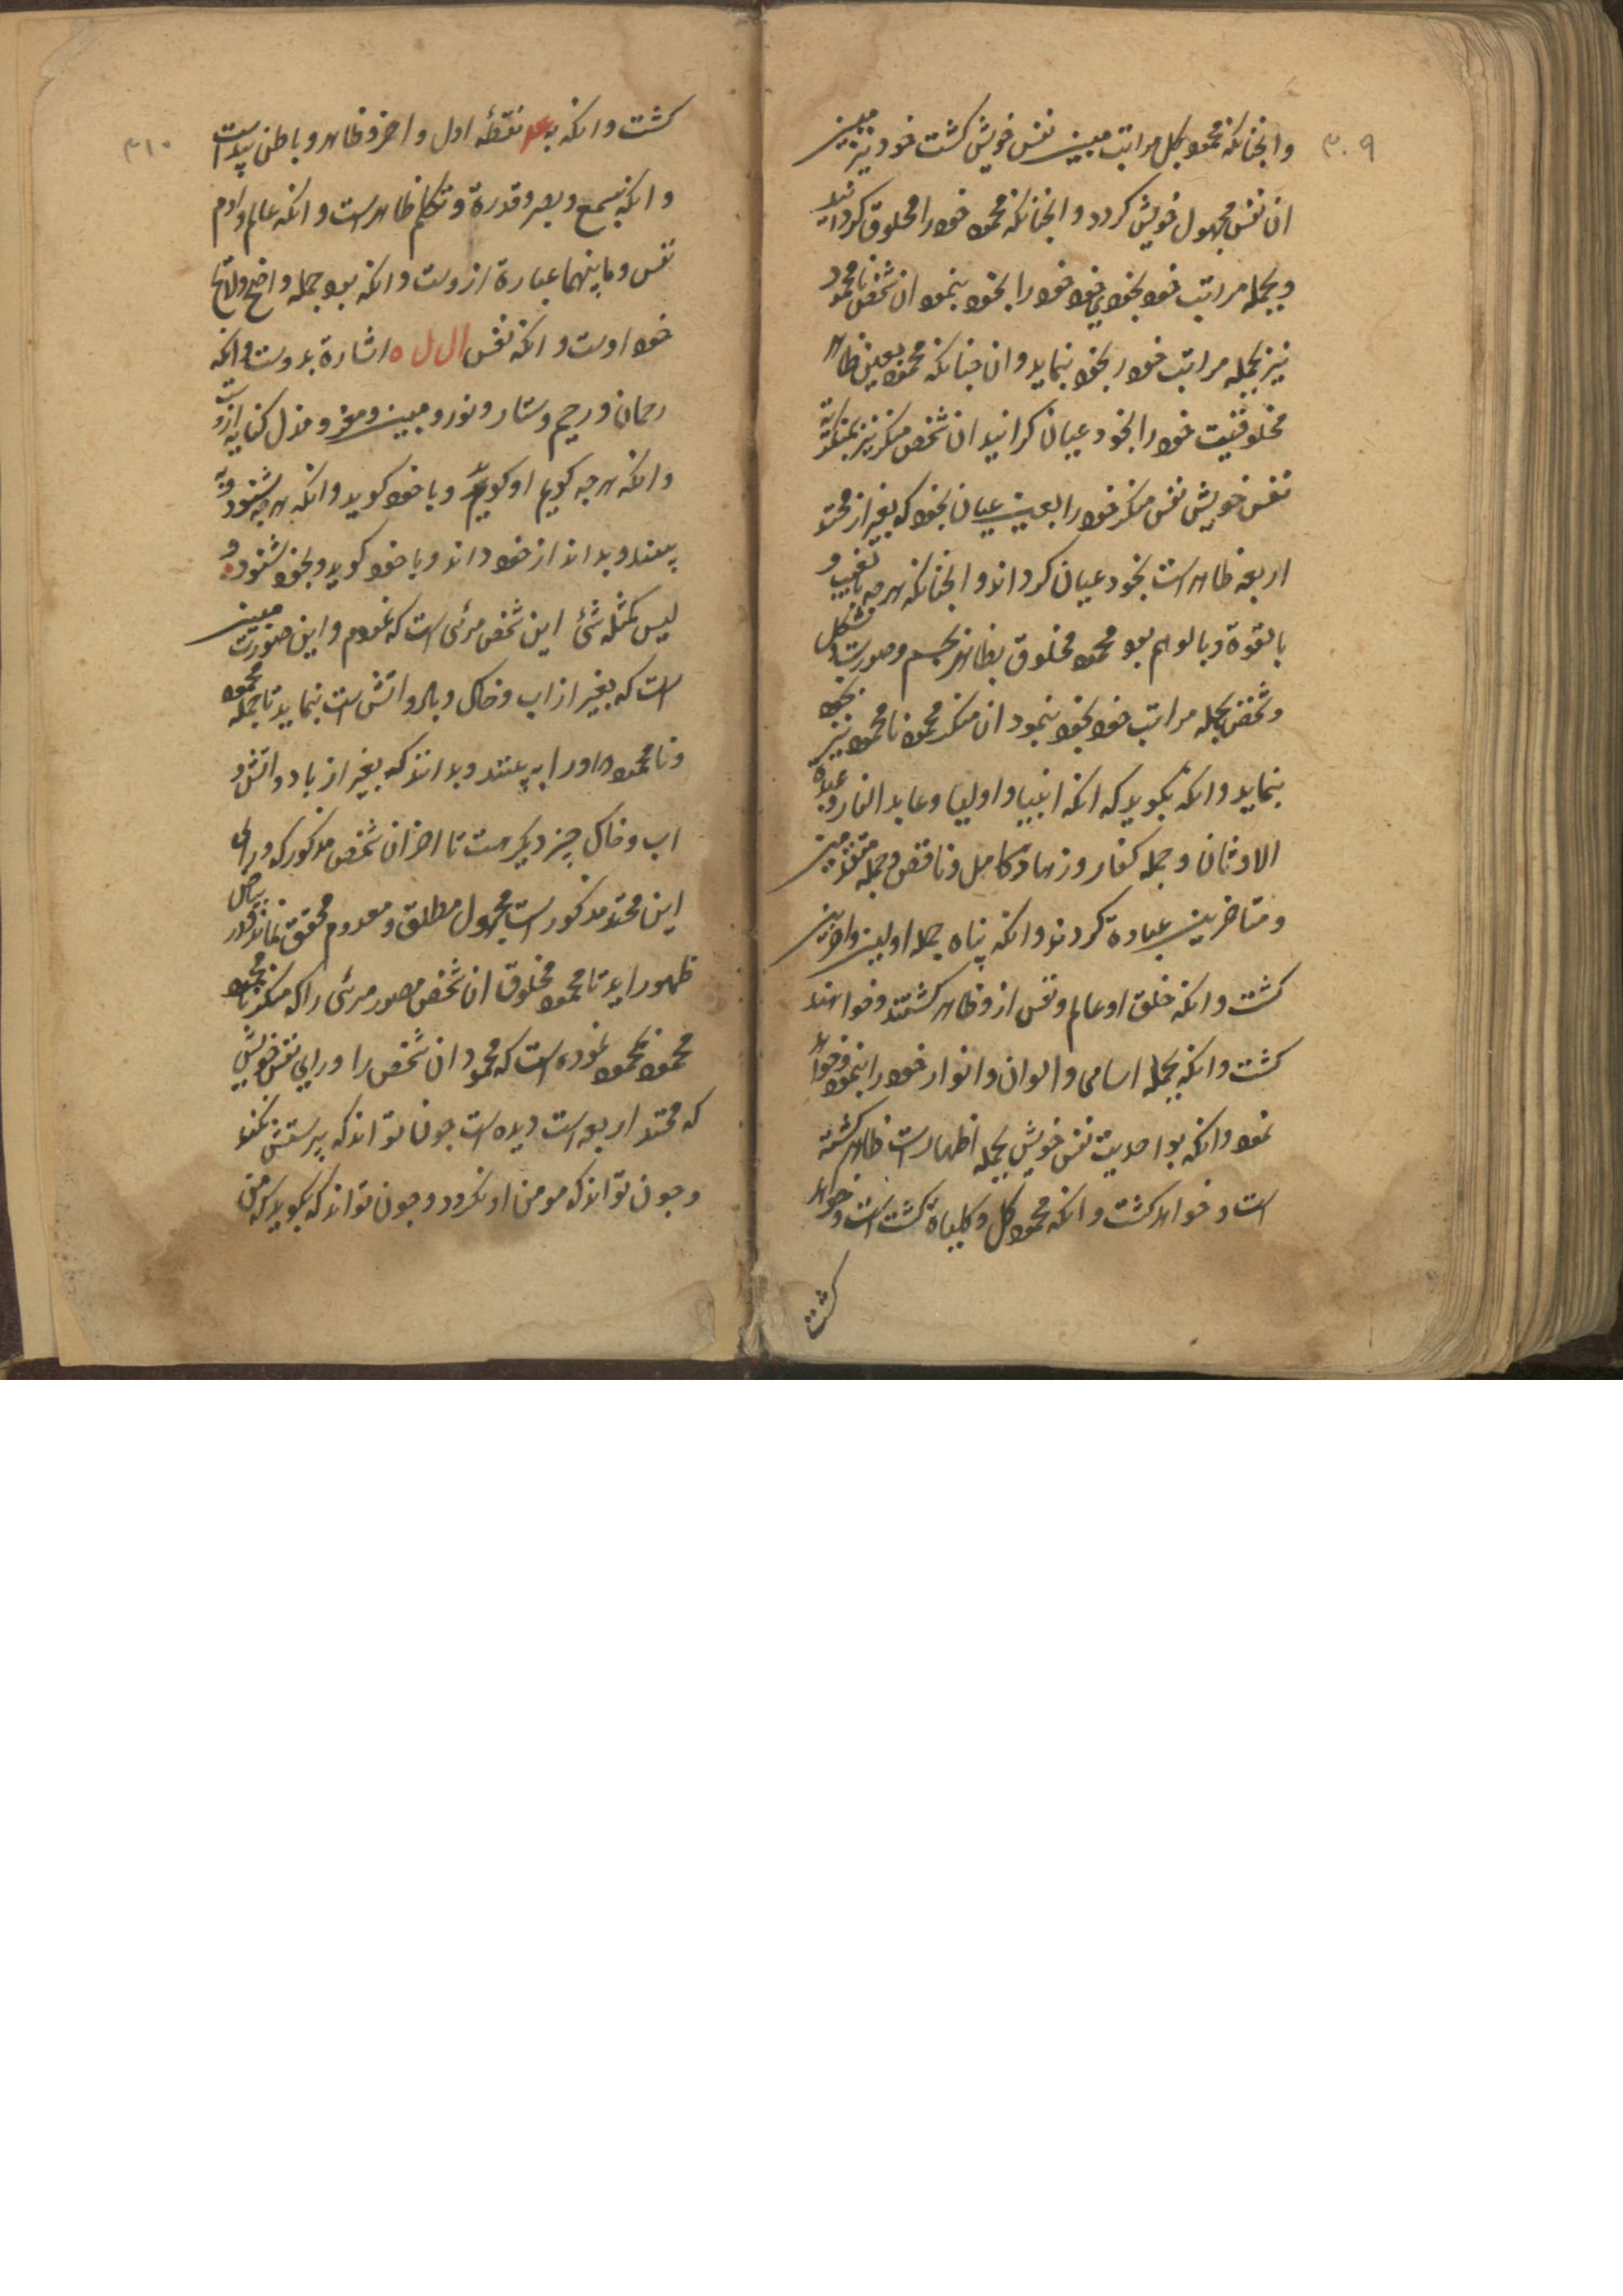 ۳۰۹
وانچنانکه محمود بکل مراتب مبین نفس خویش کشت خود نیز مبین
ان نفس مجهول خویش کردد وانچنانکه محمود خود را مخلوق کردانید
و بجمله مراتب خود بخودی خود خود را بخود بنمود ان شخص نامحمود
نیز بجمله مراتب خود را بخود بنماید وان چنانکه محمود بعین ظاهر
مخلوقیت خود را بخود عیان کرانید ان شخص منکر نیز بمنکریة
نفس خویش نفس منکر خود را بعین عیان بخود که بغیر از محتد
اربعه ظاهر است بخود عیان کرداند وانچنانکه هرچه بالغیب و
بالقوة و بالوهم بود محمود مخلوق بظاهر بجسم و صورت و شکل
و شخص بجمله مراتب خود بخود بنمود ان منکر محمود نامحمود نیز بخود
بنماید وانکه بکوید که انکه انبیا و اولیا و عابد النار و عبدة
الاوثان و جمله کفار و زهاد و کامل و ناقص و جمله متقدمین
و متاخرین عبادة کردند وانکه پناه جمله اولین و اخرین
کشت وانکه خلق او عالم و نفس ازو ظاهر کشتند و خواهند
کشت وانکه بجمله اسامی و الوان و انوار خود را بنمود و خواهد
نمود وانکه بواحدیت نفس خویش بجمله اظهارات ظاهر کشته
است و خواهد کشت وانکه محمود کل و کلیاة کشت است و خواهد
کشت
۳۱۰
کشت وانکه به نقطه اول و اخر و ظاهر و باطن پیداست
وانکه بسمع و بصر و قدرة و تکلم ظاهرست وانکه عالم و ادم
نفس و مابینهما عبارة ازوست وانکه بود جمله واضح و لایح
خود اوست وانکه نفس ال ل ه اشارة بدوست وانکه
رحمان و رحیم و ستار و نور و مبین و معز و مذل کنایه ازوست
وانکه هرچه کویم او کویم و با خود کوید وانکه هرچه شنود و
بیند و بداند از خود داند و با خود کوید و بخود شنود و
لیس کمثله شئ این شخص مرئی است که نمودم و این صورت مبین
است که بغیر از اب و خاک و باد و اتش است بنماید تا جمله محمود
و نامحمود اورا به بینند و بدانند که بغیر از باد و اتش و
اب و خاک چیز دیکر هست تا اخر ان شخص مذکور که ورای
این محتد مذکور است مجهول مطلق و معدوم محقق نماند بکمال
ظهور اید تا محمود مخلوق ان شخص مصور مرئی را که منکر نامحمود
محمود بمحمود نموده است که محمود ان شخص را ورای نفس خویش
که محتد اربعه است دیده است چون تواند که پرستش نکند
و چون تواند که مومن او نکرود و چون تواند که بکوید که من